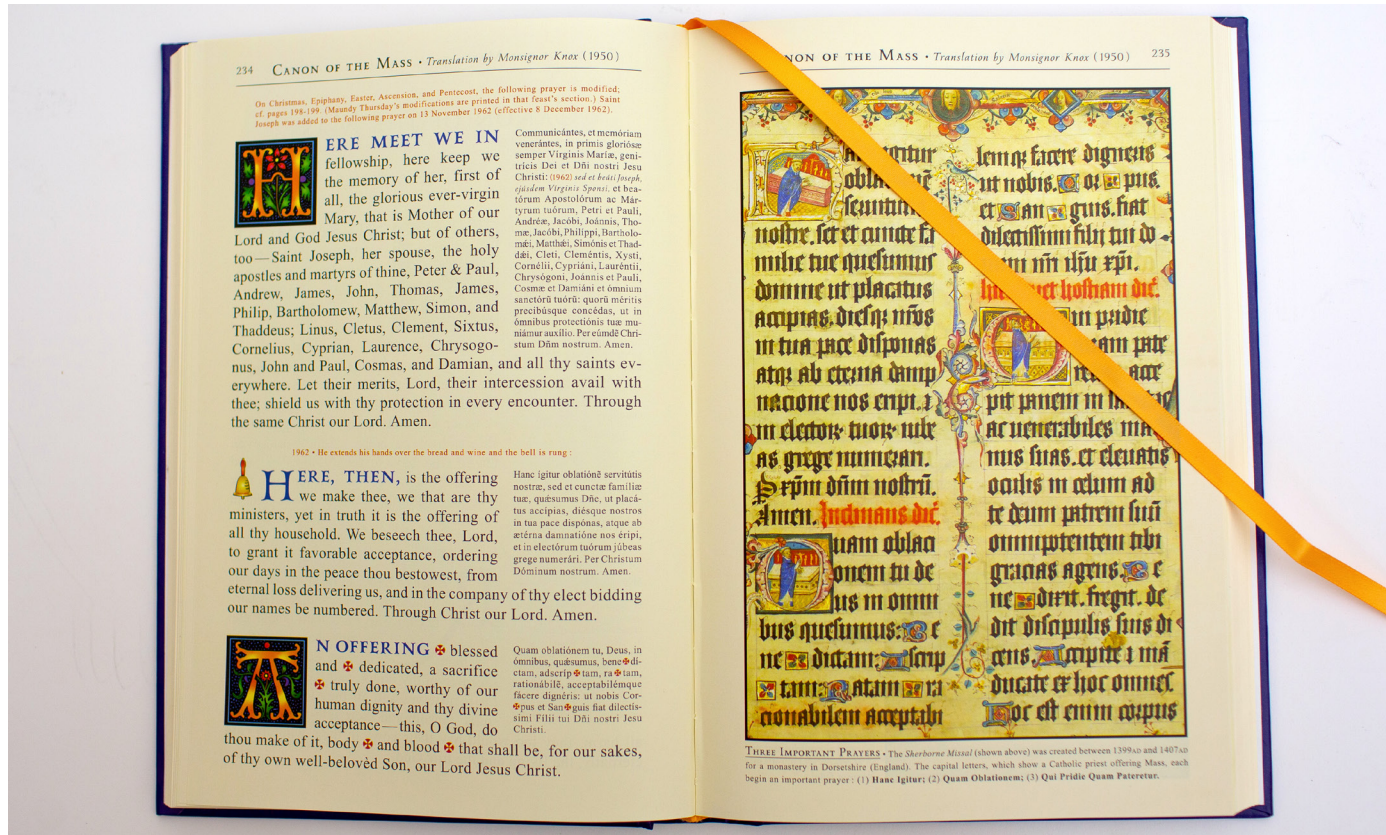 234 CANON OF THE MASS • Translation by Monsignor Knox (1950)
On Christmas, Epiphany, Easter, Ascension, and Pentecost, the following prayer is modified;
cf. pages 198-199. (Maundy Thursday's modifications are printed in that feast's section.) Saint
Joseph was added to the following prayer on 13 November 1962 (effective 8 December 1962).
HERE MEET WE IN
fellowship, here keep we
the memory of her, first of
all, the glorious ever-virgin
Mary, that is Mother of our
Lord and God Jesus Christ; but of others,
too—Saint Joseph, her spouse, the holy
apostles and martyrs of thine, Peter & Paul,
Andrew, James, John, Thomas, James,
Philip, Bartholomew, Matthew, Simon, and
Thaddeus; Linus, Cletus, Clement, Sixtus,
Cornelius, Cyprian, Laurence, Chrysogo-
nus, John and Paul, Cosmas, and Damian, and all thy saints ev-
erywhere. Let their merits, Lord, their intercession avail with
thee; shield us with thy protection in every encounter. Through
the same Christ our Lord. Amen.
Communicántes, et memóriam
venerántes, in primis gloriósæ
semper Virginis Maríæ, geni-
tricis Dei et Dñi nostri Jesu
Christi: (1962) sed et beáti Joseph,
ejúsdem Vírginis Sponsi, et bea-
tórum Apostolórum ac Már-
tyrum tuórum, Petri et Pauli,
Andréæ, Jacóbi, Joánnis, Tho-
mæ, Jacóbi, Philíppi, Bartholo-
mǽi, Matthǽi, Simónis et Thad-
dǽi, Cleti, Cleméntis, Xysti,
Cornélii, Cypriáni, Lauréntii,
Chrysógoni, Joánnis et Pauli,
Cosmæ et Damiáni et ómnium
sanctórũ tuórũ: quorũ méritis
precibúsque concédas, ut in
ómnibus protectiónis tuæ mu-
niámur auxílio. Per eúmdẽ Chri-
stum Dñm nostrum. Amen.
1962 • He extends his hands over the bread and wine and the bell is rung :
HERE, THEN, is the offering
we make thee, we that are thy
ministers, yet in truth it is the offering of
all thy household. We beseech thee, Lord,
to grant it favorable acceptance, ordering
our days in the peace thou bestowest, from
eternal loss delivering us, and in the company of thy elect bidding
our names be numbered. Through Christ our Lord. Amen.
Hanc ígitur oblatiónẽ servitútis
nostræ, sed et cunctæ famíliæ
tuæ, quǽsumus Dñe, ut placá-
tus accípias, diésque nostros
in tua pace dispónas, atque ab
ætérna damnatióne nos éripi,
et in electórum tuórum júbeas
grege numerári. Per Christum
Dóminum nostrum. Amen.
AN OFFERING ✠ blessed
and ✠ dedicated, a sacrifice
✠ truly done, worthy of our
human dignity and thy divine
acceptance—this, O God, do
thou make of it, body ✠ and blood ✠ that shall be, for our sakes,
of thy own well-belovèd Son, our Lord Jesus Christ.
Quam oblatiónem tu, Deus, in
ómnibus, quǽsumus, bene✠dí-
ctam, adscríp✠tam, ra✠tam,
rationábilẽ, acceptabilémque
fácere dignéris: ut nobis Cor-
✠pus et San✠guis fiat dilectís-
simi Fílii tui Dñi nostri Jesu
Christi.
NON OF THE MASS • Translation by Monsignor Knox (1950) 235
igitur
nostre. set et cuncte fa
milie tue quesumus
domine ut placatus
accipias. diesqꝫ nr̃os
in tua pace disponas
atqꝫ ab eterna damp
nacione nos eripi. ⁊
in electoꝝ tuoꝝ iube
as grege numerari.
P xp̃m dñm nostrũ.
Amen. Inclinans dic̃.
Quam oblaci
onem tu de
us in omni
bus quesumus: Be
ne dictam: Ascrip
tam: Ratam ra
cionabilem acceptabi
lemqꝫ facere digneris
ut nobis. Cor pus.
et San guis. fiat
dilectissimi filii tui do
ni nr̃i ih̃u xp̃i.
hostiam dic̃.
ui pridie
quam pate
acce
pit panem in
ac venerabiles ma
nus suas. et eleuatis
oculis in celum ad
te deum patrem suũ
omnipotentem tibi
gracias agens Be
ne dixit. fregit. de
dit discipulis suis di
cens. Accipite ⁊ mã
ducate ex hoc omnes.
Hoc est enim corpus
THREE IMPORTANT PRAYERS • The Sherborne Missal (shown above) was created between 1399AD and 1407AD
for a monastery in Dorsetshire (England). The capital letters, which show a Catholic priest offering Mass, each
begin an important prayer : (1) Hanc Igitur; (2) Quam Oblationem; (3) Qui Pridie Quam Pateretur.